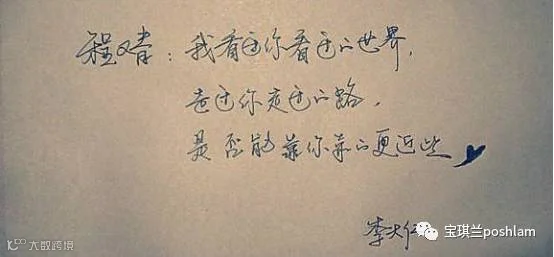 程又青：我看过你看过的世界，
走过你走过的路，
是否能靠你靠的更近些
李大仁
宝琪兰poshlam
大数跨境